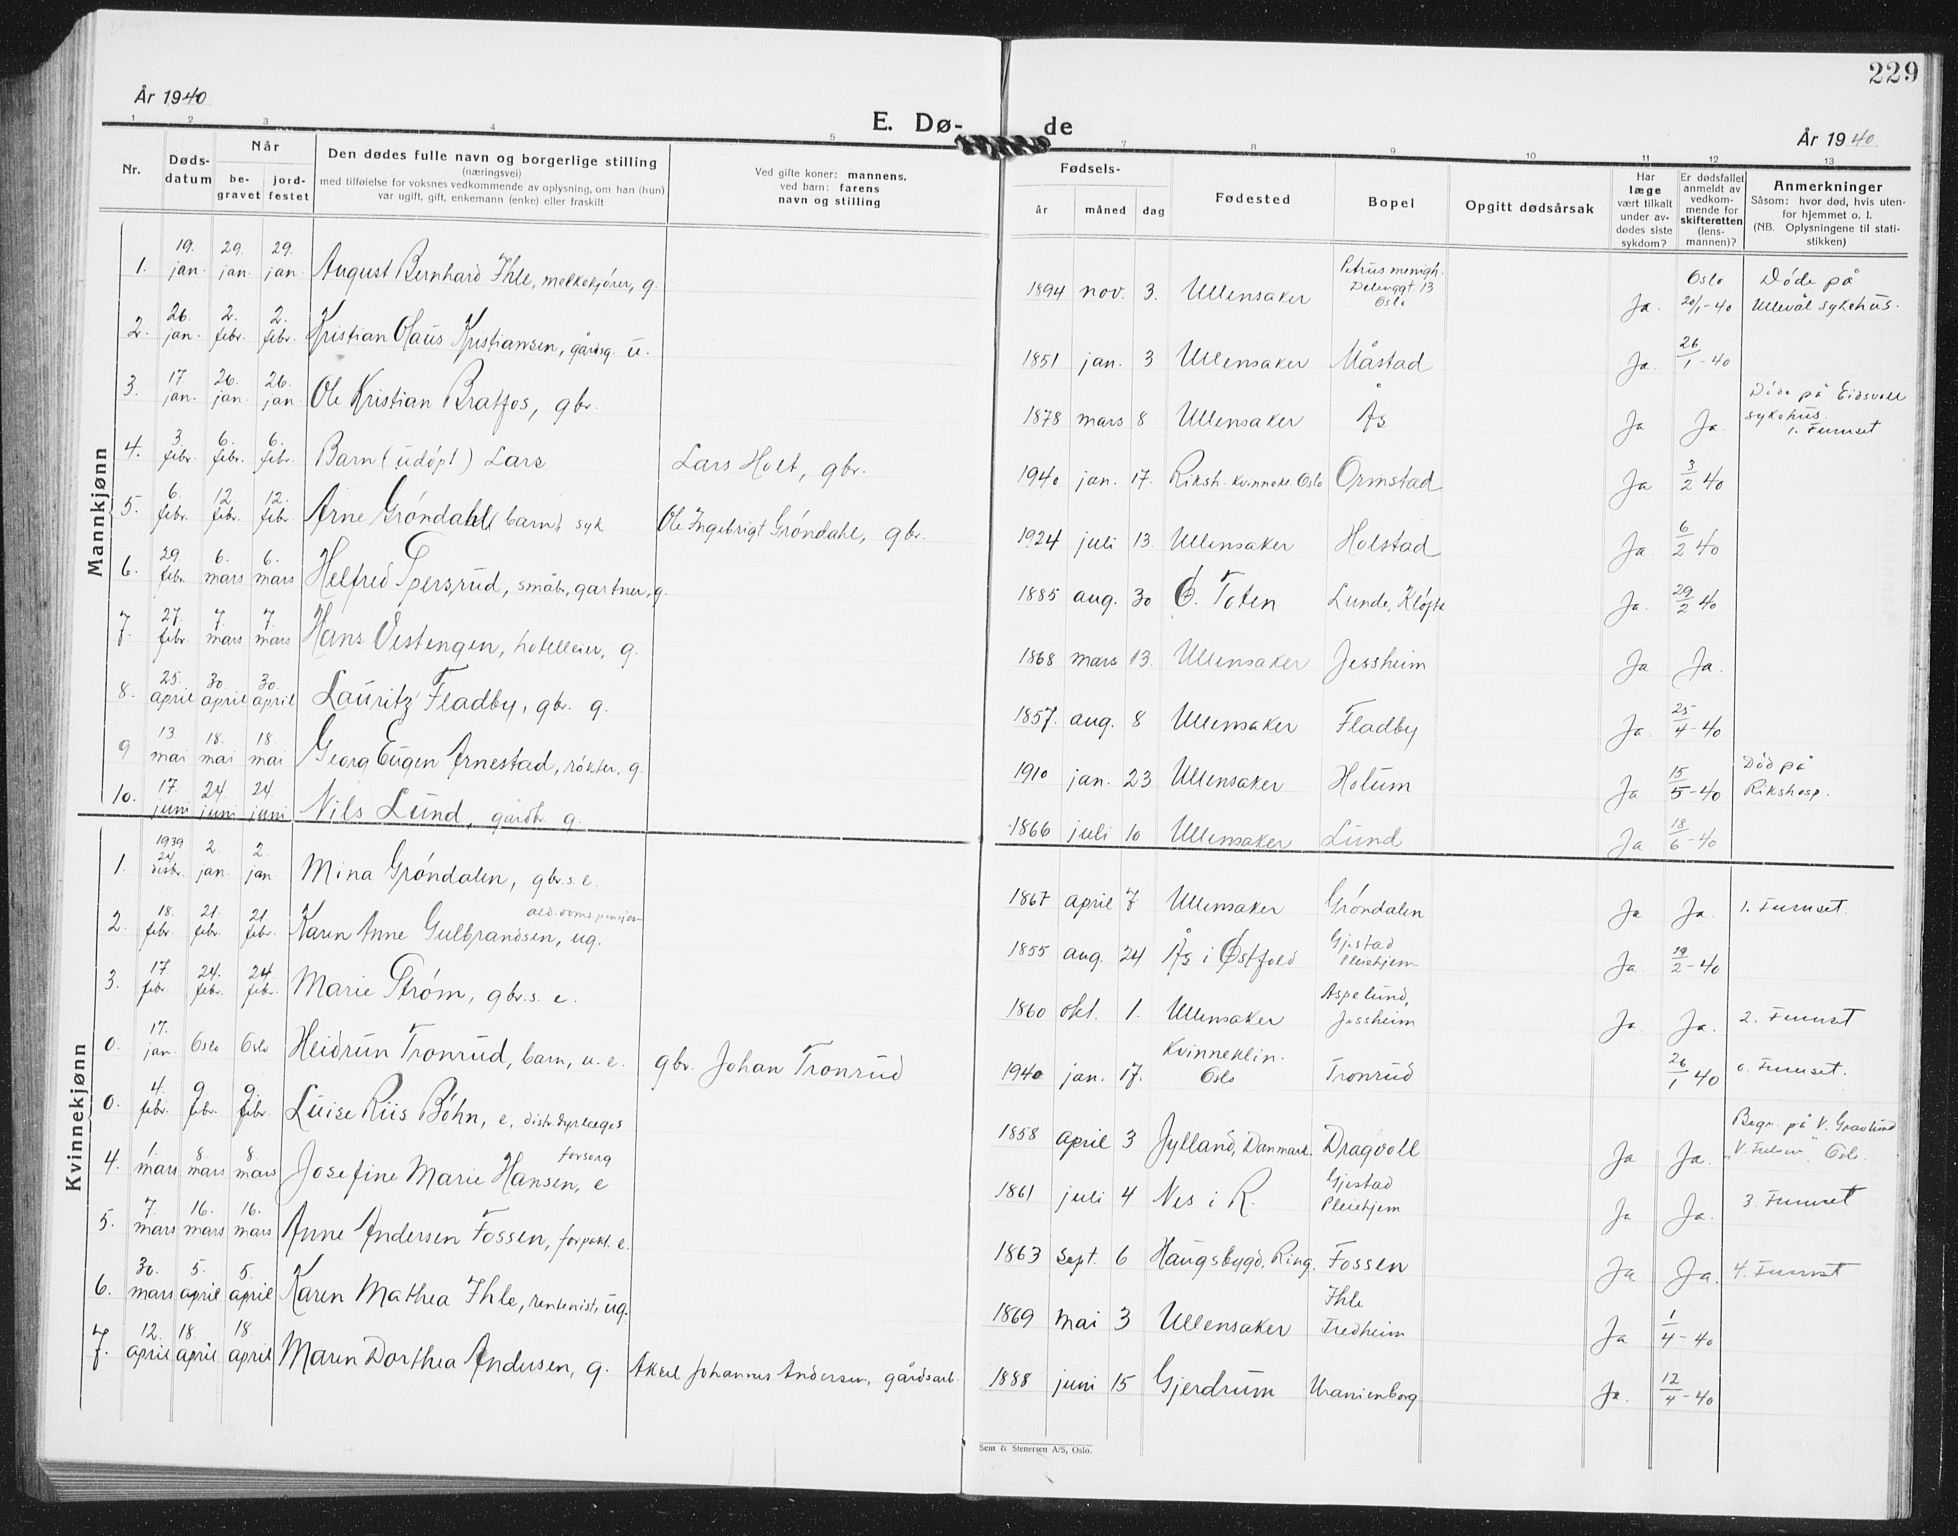 229
År 1940
E. Dø- de
År 1940
1 2 3 4 5 7 8 9 10 11 12 13
Nr.
Døds-datum
Når
be-gravet
jord-festet
Den dødes fulle navn og borgerlige stilling
(næringsvei)
med tilføielse for voksnes vedkommende av oplysning, om han (hun)
var ugift, gift, enkemann (enke) eller fraskilt
Ved gifte koner: mannens,
ved barn: farens
navn og stilling
Fødsels-
år måned dag
Fødested
Bopel
Opgitt dødsårsak
Har læge vært tilkalt under av-dødes siste sykdom?
Er dødsfallet anmeldt av vedkom-mende for skifteretten (lens-mannen)?
Anmerkninger
Såsom: hvor død, hvis uten-for hjemmet o. l.
(NB. Oplysningene til stati-stikken)
Mannkjønn
1. 19. jan. 29. jan. 29. jan. August Bernhard Ihle, melkekjører, g. 1894 nov. 3. Ullensaker Petrus menigh. Delenggt. 13 Oslo Ja. Oslo 20/1-40 Døde på Ullevål sykehus.
2. 26. jan. 2. febr. 2. febr. Kristian Olaus Kristiansen, gårdsg. u. 1851 jan. 3 Ullensaker Måstad Ja. 26/1-40
3. 17. jan. 26. jan 26. jan Ole Kristian Bratfos, gbr. 1878 mars 8 Ullensaker Ås Ja Ja. Døde på Eidsvoll sykehus. 1. Furuset
4. 3. febr. 6. febr. 6. febr. Barn (udøpt) Lars Lars Holt, gbr. 1940 jan. 17. Riksh. kvinnekl. Oslo Ormstad Ja 3/2 40
5. 6. febr. 12. febr. 12. febr. Arne Grøndahl barn, syk Ole Ingebrigt Grøndahl, gbr. 1924 juli 13. Ullensaker Holstad Ja. 6/2 40
6. 29. febr. 6. mars 6. mars Helfred Spersrud, småbr, gartner, g. 1885 aug. 30 Ø. Toten Lunde, Kløfta Ja. 29/2 40
7. 27. febr. 7. mars 7. mars Hans Vestengen, hotelleier, g. 1868 mars 13. Ullensaker Jessheim Ja Ja.
8. 25. april 30. april 30. april Lauritz Fladby, gbr. g. 1857. aug. 8 Ullensaker Fladby Ja. 25/4-40
9 13. mai 18. mai 18. mai Georg Eugen Arnestad, røkter, g. 1910 jan. 23 Ullensaker Holum Ja 15/5-40 Død på Rikshosp.
10. 17. juni 24. juni 24. juni Nils Lund, gårdbr. g. 1866 juli 10 Ullensaker Lund Ja. 18/6-40
Kvinnekjønn
1. 1939 24 desbr. 2. jan. 2. jan. Mina Grøndalen, gbr.s. e. 1867 april 7 Ullensaker Grøndalen Ja Ja. 1. Furuset.
2. 18. febr. 21. febr. 21 febr. Karen Anne Gulbrandsen, ug. 1855 aug. 24 Ås i Østfold Gjestad Pleiehjem Ja. 19/2-40
3. 17. febr. 24. febr. 24. febr. Marie Strøm, gbr.s. e. 1860 okt. 1. Ullensaker Aspelund, Jessheim Ja. Ja. 2. Furuset
0. 17. jan. Oslo Oslo Heidrun Tronrud, barn, u. e. gbr. Johan Tronrud 1940 jan. 17. Kvinneklin. Oslo Tronrud 26/1 40 0. Furuset.
0. 4. febr. 9 febr. 9. febr. Luise Riis Bøhn, e, distr.dyrlæges 1858 april 3 Jylland, Danmark. Dragvoll Ja Ja. Begr. på V. Gravlund Oslo.
4. 1. mars 8. mars 8. mars Josefine Marie Hansen, e forsorg 1861 juli 4 Nes i R. Gjestad Pleiehjem Ja Ja. 3. Furuset
5. 7. mars 16. mars 16. mars Anne Andersen Fossen, forpakt. e. 1863 sept. 6 Haugsbygd, Ring. Fossen Ja Ja. 4. Furuset
6. 30. mars 5. april 5. april Karen Mathea Ihle, rentenist, ug. 1869 mai 3 Ullensaker Ihle Fredheim Ja 1/4-40
7. 12. april 18. april 18. april Maren Dorthea Andersen, g. Aksel Johannes Andersen, gårdsarb. 1888 juni 15 Gjerdrum Uranienborg Ja. 12/4-40
Sem & Stenersen A/S, Oslo.